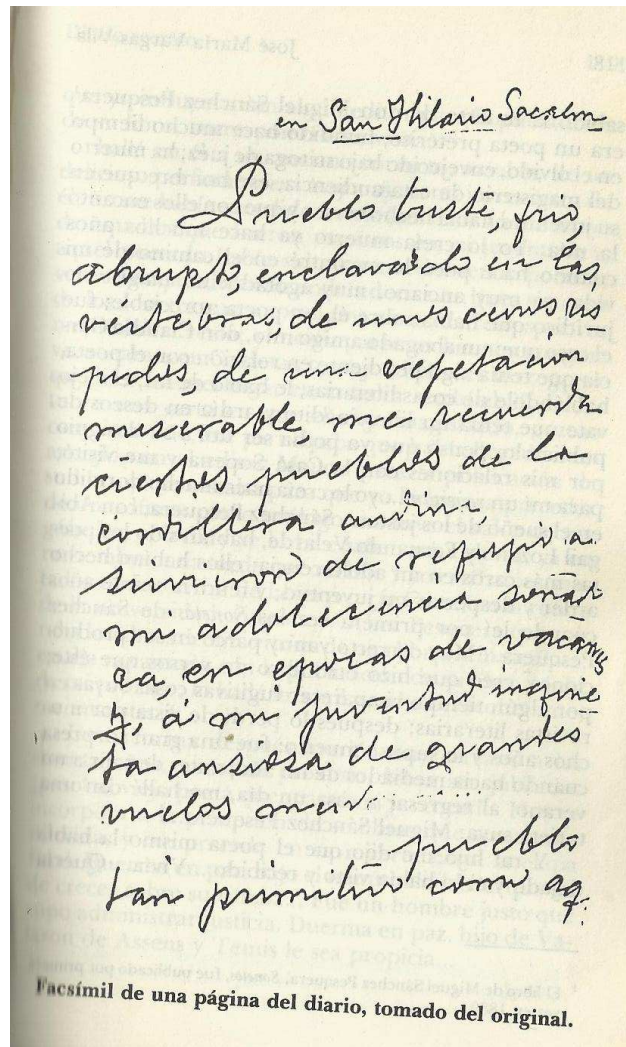 en San Hilario Sacalm
Pueblo triste, frio,
abrupto, enclavado en las,
vértebras, de unos cerros ris
pidos, de una vegetación
miserable me recuerda
ciertos pueblos de la
cordillera andina,
sirvieron de refugio a
mi adolecencia soñad
ra en epocas de vacaciones
y, á mi juventud inquie
ta ansiosa de grandes
vuelos
pueblo
tan primitivo como aq.
Facsímil de una página del diario, tomado del original.